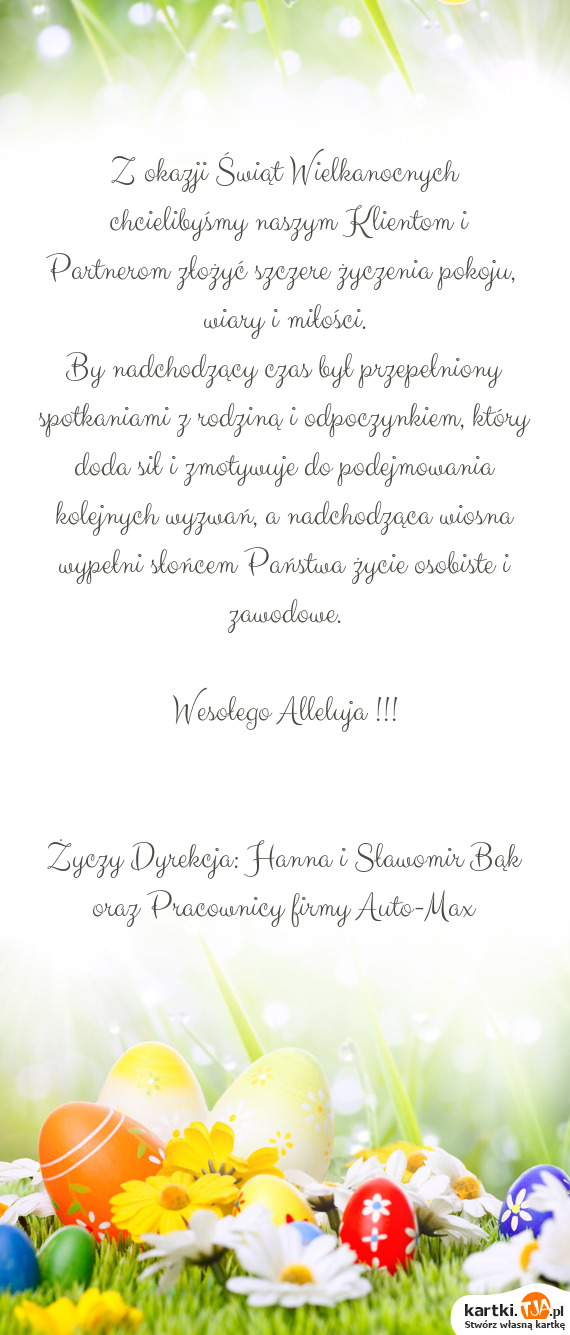 Z okazji Świąt Wielkanocnych
chcielibyśmy naszym Klientom i
Partnerom złożyć szczere życzenia pokoju,
wiary i miłości.
By nadchodzący czas był przepełniony
spotkaniami z rodziną i odpoczynkiem, który
doda sił i zmotywuje do podejmowania
kolejnych wyzwań, a nadchodząca wiosna
wypełni słońcem Państwa życie osobiste i
zawodowe.
Wesołego Alleluja !!!
Życzy Dyrekcja: Hanna i Sławomir Bąk
oraz Pracownicy firmy Auto-Max
kartki.TJA.pl
Stwórz własną kartkę